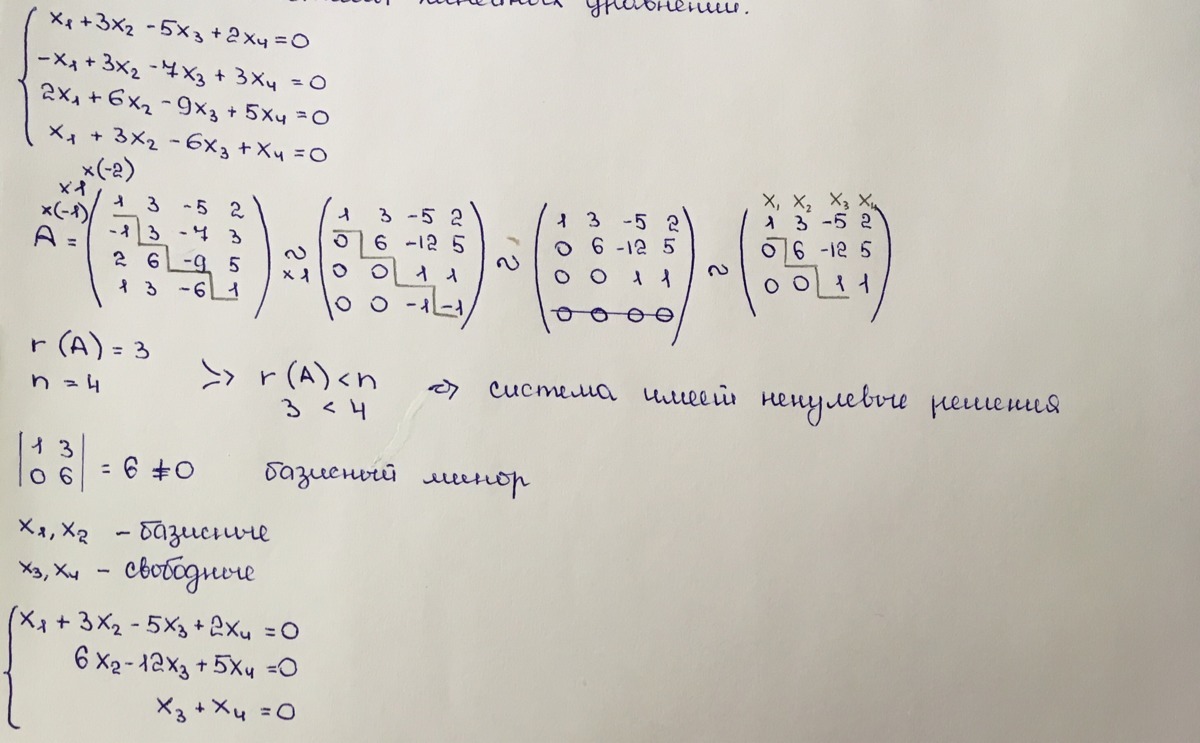 линейных уравнений.
x₁ + 3x₂ - 5x₃ + 2x₄ = 0
-x₁ + 3x₂ - 7x₃ + 3x₄ = 0
2x₁ + 6x₂ - 9x₃ + 5x₄ = 0
x₁ + 3x₂ - 6x₃ + x₄ = 0
x(-2)
x1
x(-1)
A = ( 1 3 -5 2 ; -1 3 -7 3 ; 2 6 -9 5 ; 1 3 -6 1 ) ~ x1 ( 1 3 -5 2 ; 0 6 -12 5 ; 0 0 1 1 ; 0 0 -1 -1 ) ~ ( 1 3 -5 2 ; 0 6 -12 5 ; 0 0 1 1 ; 0 0 0 0 ) ~ ( x₁ x₂ x₃ x₄ ; 1 3 -5 2 ; 0 6 -12 5 ; 0 0 1 1 )
r (A) = 3
n = 4 => r (A) < n => система имеет ненулевые решения
3 < 4
| 1 3 ; 0 6 | = 6 ≠ 0 базисный минор
x₁, x₂ - базисные
x₃, x₄ - свободные
x₁ + 3x₂ - 5x₃ + 2x₄ = 0
6x₂ - 12x₃ + 5x₄ = 0
x₃ + x₄ = 0